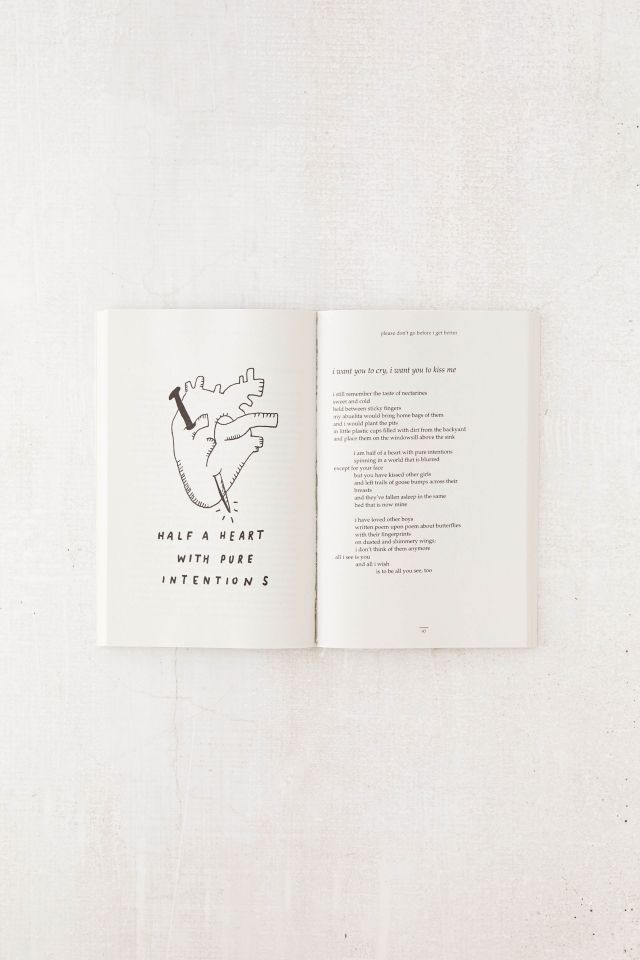 HALF A HEART
WITH PURE
INTENTIONS
please don't go before i get better
i want you to cry, i want you to kiss me
i still remember the taste of nectarines
sweet and cold
held between sticky fingers
my abuelita would bring home bags of them
and i would plant the pits
in little plastic cups filled with dirt from the backyard
and place them on the windowsill above the sink
i am half of a heart with pure intentions
spinning in a world that is blurred
except for your face
but you have kissed other girls
and left trails of goose bumps across their
breasts
and they've fallen asleep in the same
bed that is now mine
i have loved other boys
written poem upon poem about butterflies
with their fingerprints
on dusted and shimmery wings;
i don't think of them anymore
all i see is you
and all i wish
is to be all you see, too